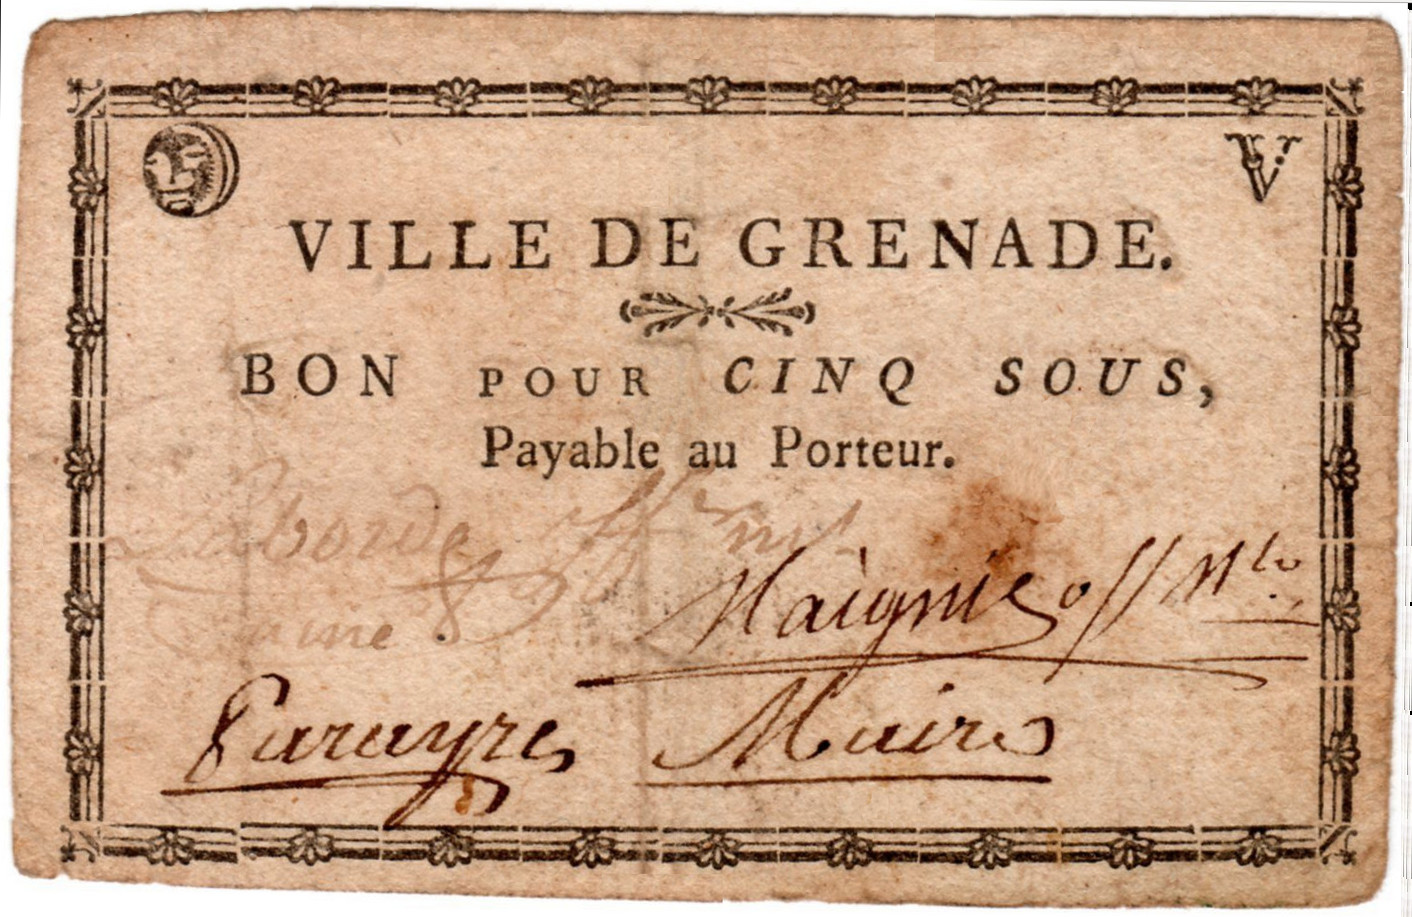 V
VILLE DE GRENADE.
BON POUR CINQ SOUS,
Payable au Porteur.
Laborde off mpl
ainé
Maignié off Mle
Parayre Maire